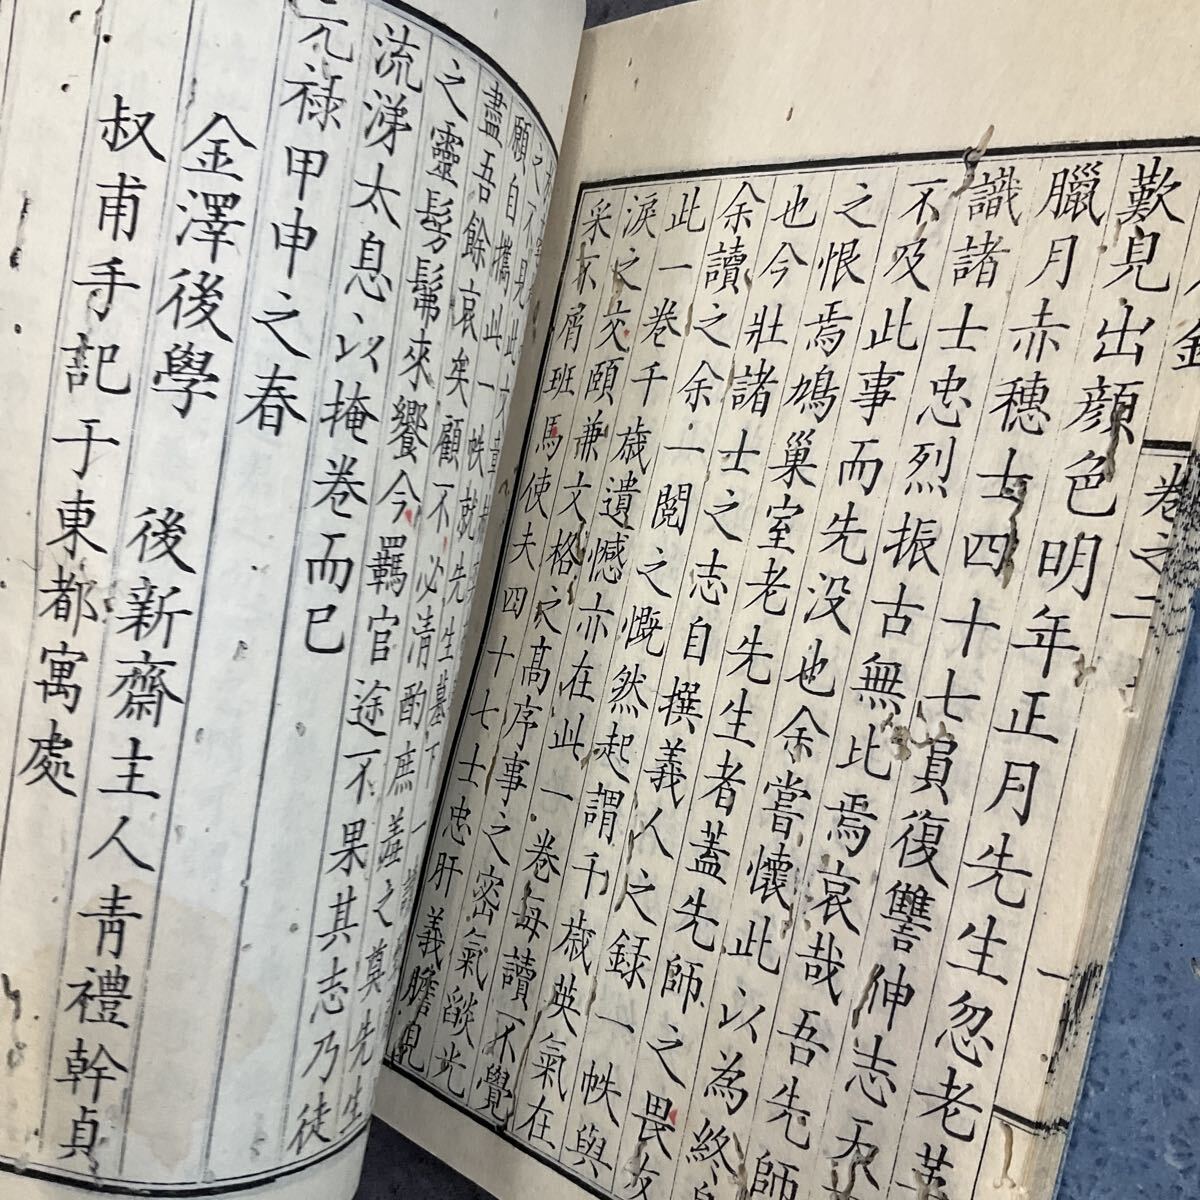 卷之二 一
歎見出顏色明年正月先生忽老
臘月赤穗士四十七員復讐伸志天
識諸士忠烈振古無比焉哀哉吾先師
不及此事而先没也余嘗懷此以為終
之恨焉鳩巢室老先生者蓋先師之畏友
也今壯諸士之志自撰義人之録一帙與
余讀之余一閲之慨然起謂千歳英氣在
此一卷千歳遺憾亦在此一卷毎讀不覺
淚之交頤兼文格之髙序事之密氣燄光
采不屑班馬使夫四十七士忠肝義膽見
之不見此文章
願自攜此一帙就先生墓下一
盡吾餘哀矣顧不必清酌庶羞之奠先生
之靈髣髴來饗今羈官途不果其志乃徒
流涕太息以掩卷而已
元禄甲申之春
金澤後學 後新齋主人青禮幹貞
叔甫手記于東都寓處